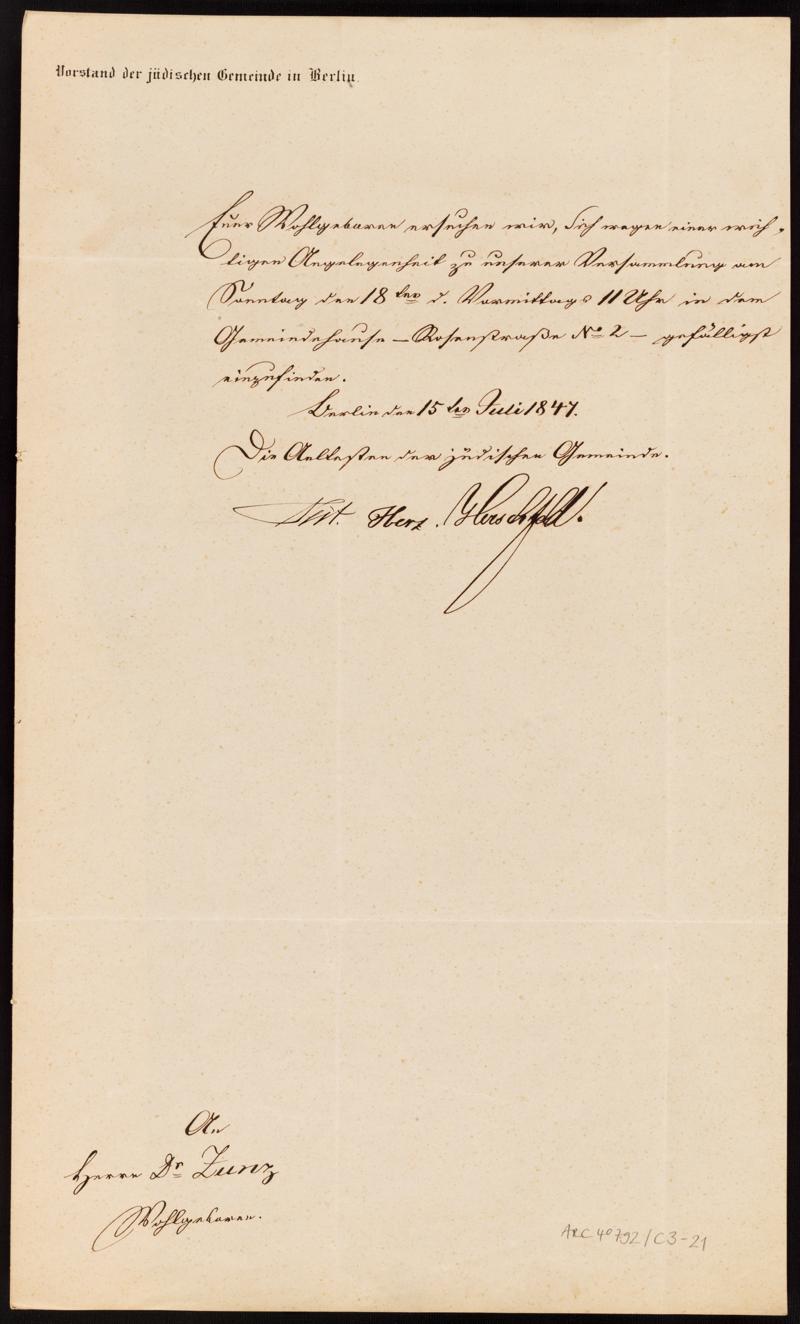 Vorstand der jüdischen Gemeinde in Berlin.
Euer Wohlgeboren ersuchen wir, Sich wegen einer wich-
tigen Angelegenheit zu unserer Versammlung am
Sonntag den 18ten d. Vormittags 11 Uhr in dem
Gemeindehause – Rosenstraße No 2 – gefälligst
einzufinden.
Berlin den 15ten Juli 1847.
Die Aeltesten der jüdischen Gemeinde.
Herz. Herschfeld.
An
Herrn Dr Zunz
Wohlgeboren.
ARC 4o 792/C3-21